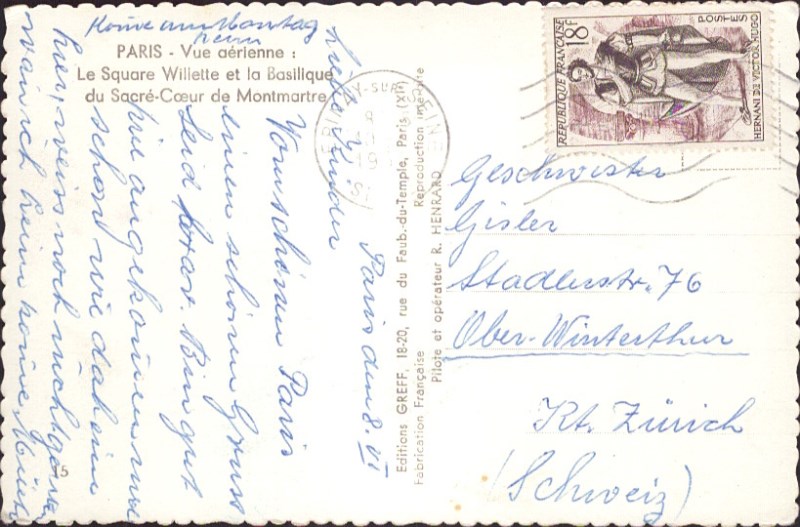 Komme am Montag
heim
PARIS - Vue aérienne :
Le Square Willette et la Basilique
du Sacré-Cœur de Montmartre
Paris den 8. VI
Liebe Kinder
Vom schönen Paris
einen schönen Gruss
Seid brav. Bin gut
hie angekommen
schont wie daheim
hier, weiss noch nicht genau
wan ich heim komme
Editions GREFF, 18-20, rue du Faub.-du-Temple, Paris (XIe)
Fabrication Française Reproduction interdite
Pilote et opérateur R. HENRARD
REPUBLIQUE FRANÇAISE
18F
POSTES
HERNANI DE VICTOR HUGO
Geschwister
Gisler
Stadlerstr. 76
Ober-Winterthur
Kt. Zürich
(Schweiz)